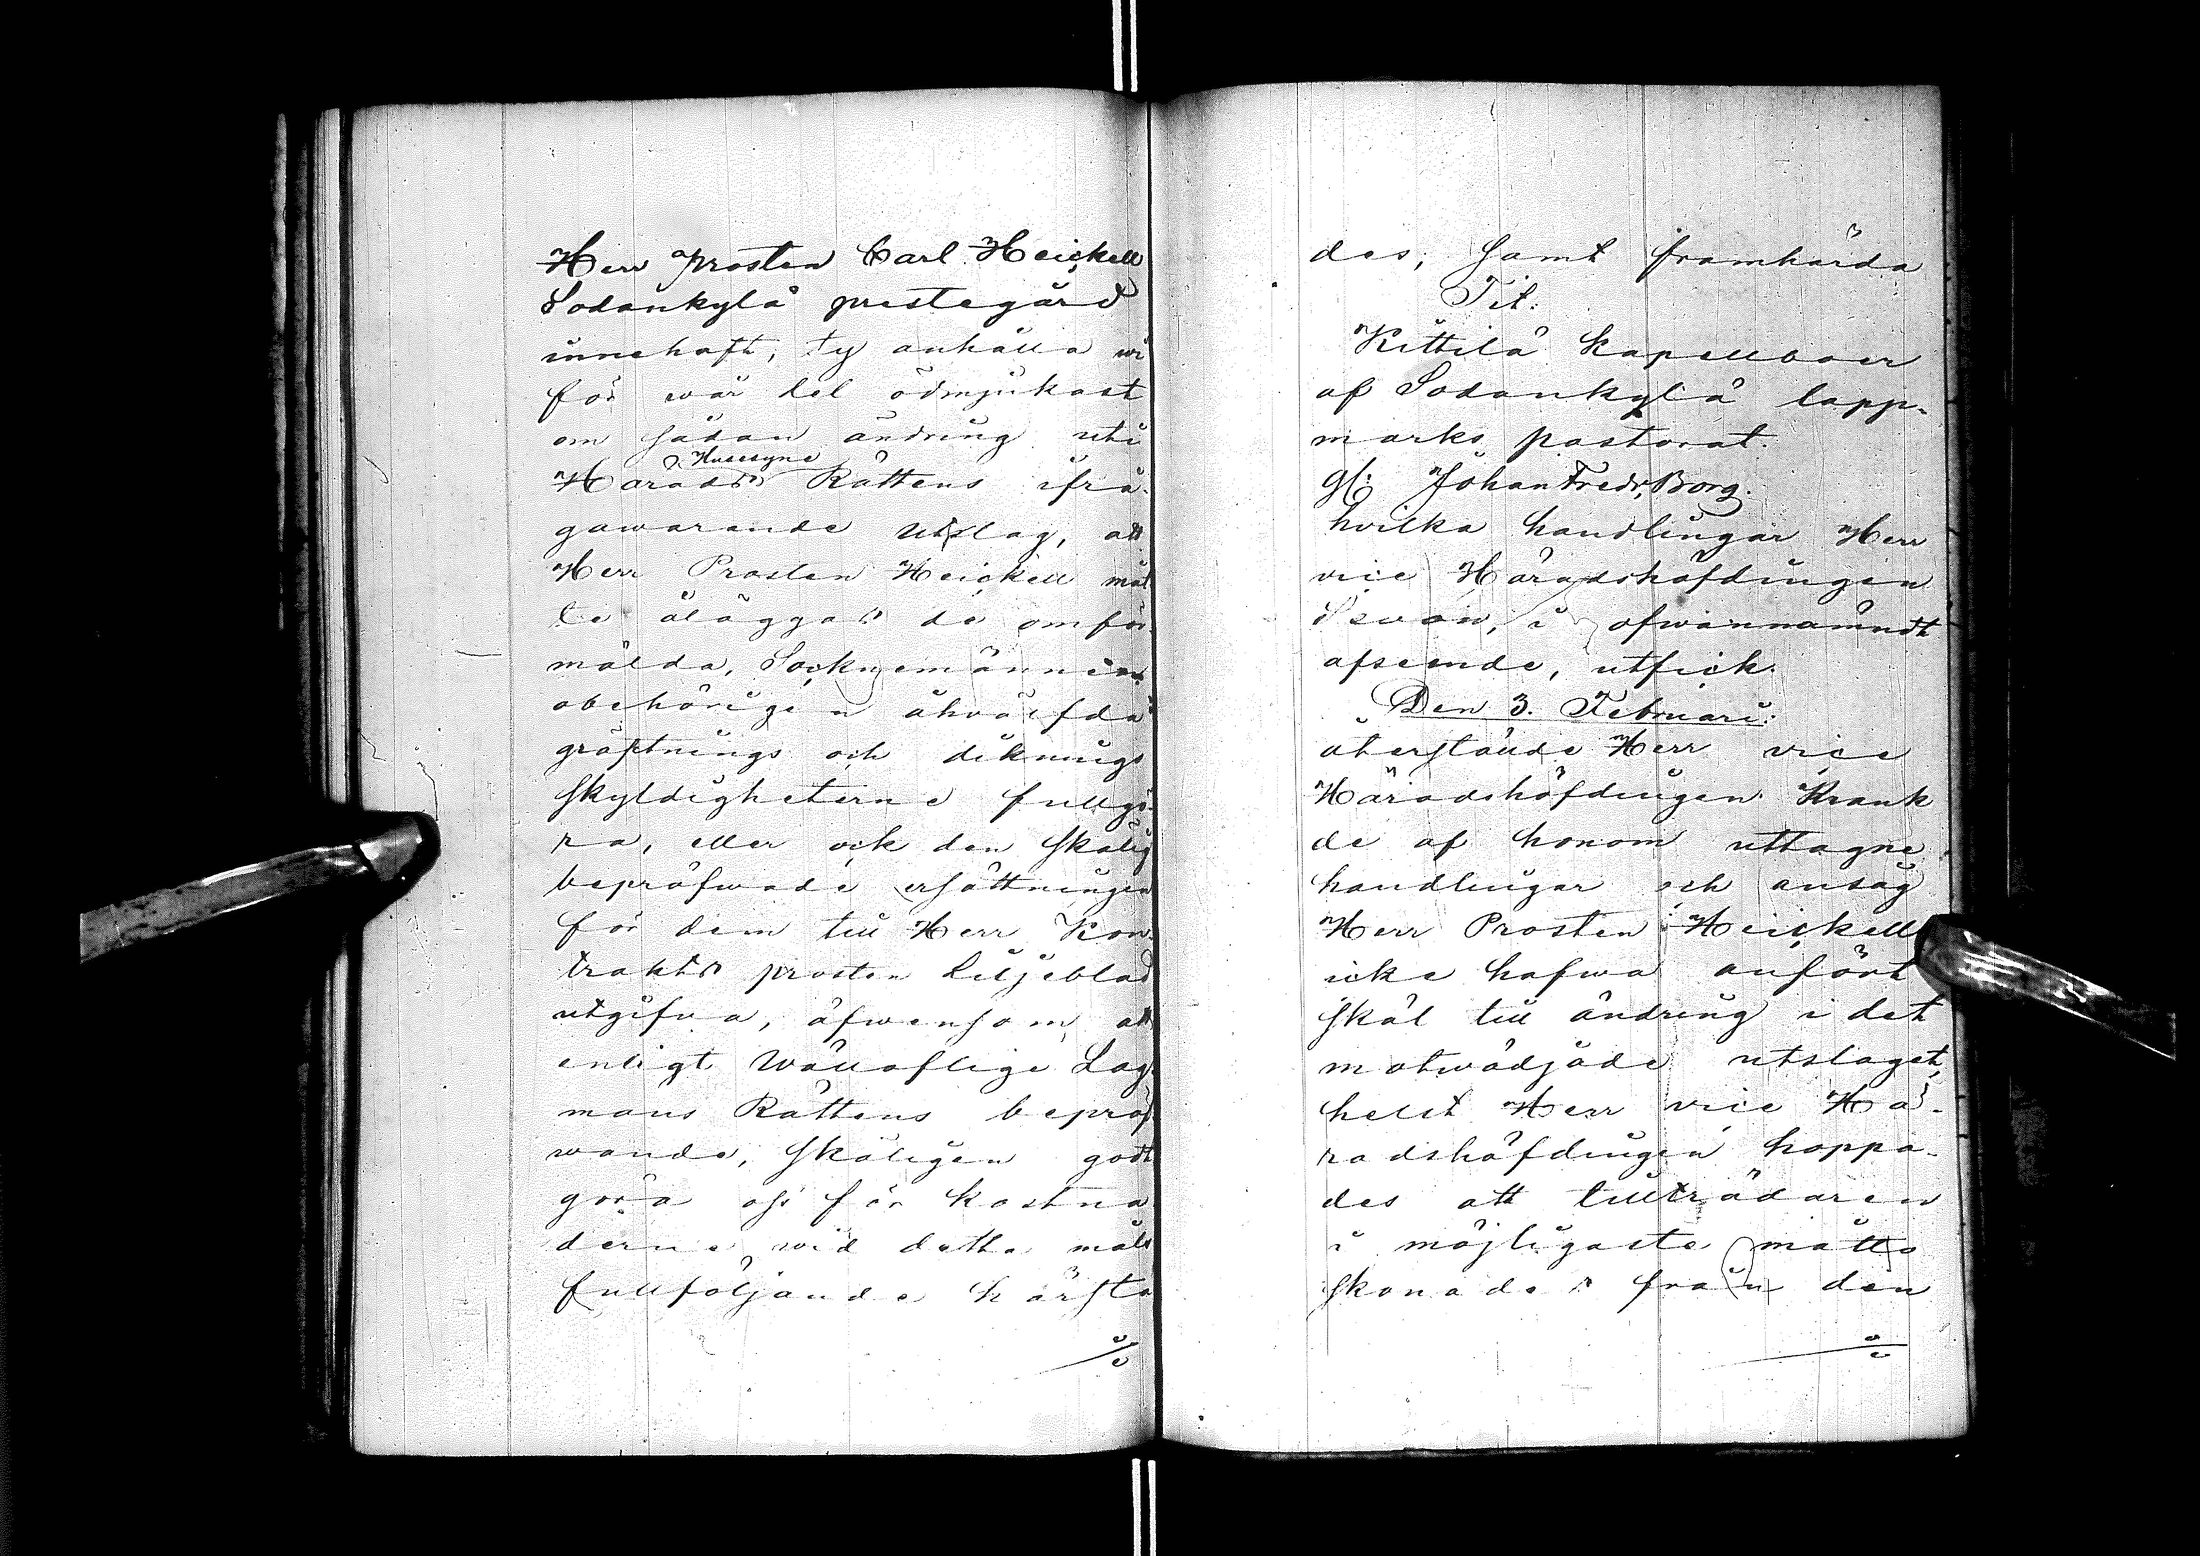 Herr Prosten Carl Heickell
Sodankylä prestegård
innehaft, ty anhålla wi
för wår del ödmjukast
om sådan ändring uti
Husesyns
Härads Rättens ifrå-
gawarande utslag, att
Herr Prosten Heickell måt
te åläggas de omför-
mälda, Socknemännen
obehörigen åhvälfda
gräftnings och diknings
skyldigheterne fullgö-
ra, eller ock den skälig
bepröfwade ersättningen
för dem till Herr Kon-
trakts prosten Liljeblad
utgifwa, äfwensom att
enligt Wällaflige Lag-
mans Rättens bepröf
wande, skäligen godt
göra oss för kostna
derne wid detta måls
fullföljande härsta
des, samt framhärda
Tit.
Kittilä kapellboer
af Sodankylä lapp-
marks pastorat.
gm Johan Fredr. Borg.
hvilka handlingar Herr
vice Häradshöfdingen
Svan, i ofwannämndt
afseende, utfick.
Den 3. Februari.
återstälde Herr vice
Häradshöfdingen Krank
de af honom uttagne
handlingar och ansåg
Herr Prosten Heickell
icke hafwa anfört
skäl till ändring i det
motwädjade utslaget,
helst Herr vice Hä-
radshöfdingen hoppa-
des att tillträdaren
i möjligaste måtto
skonades från den